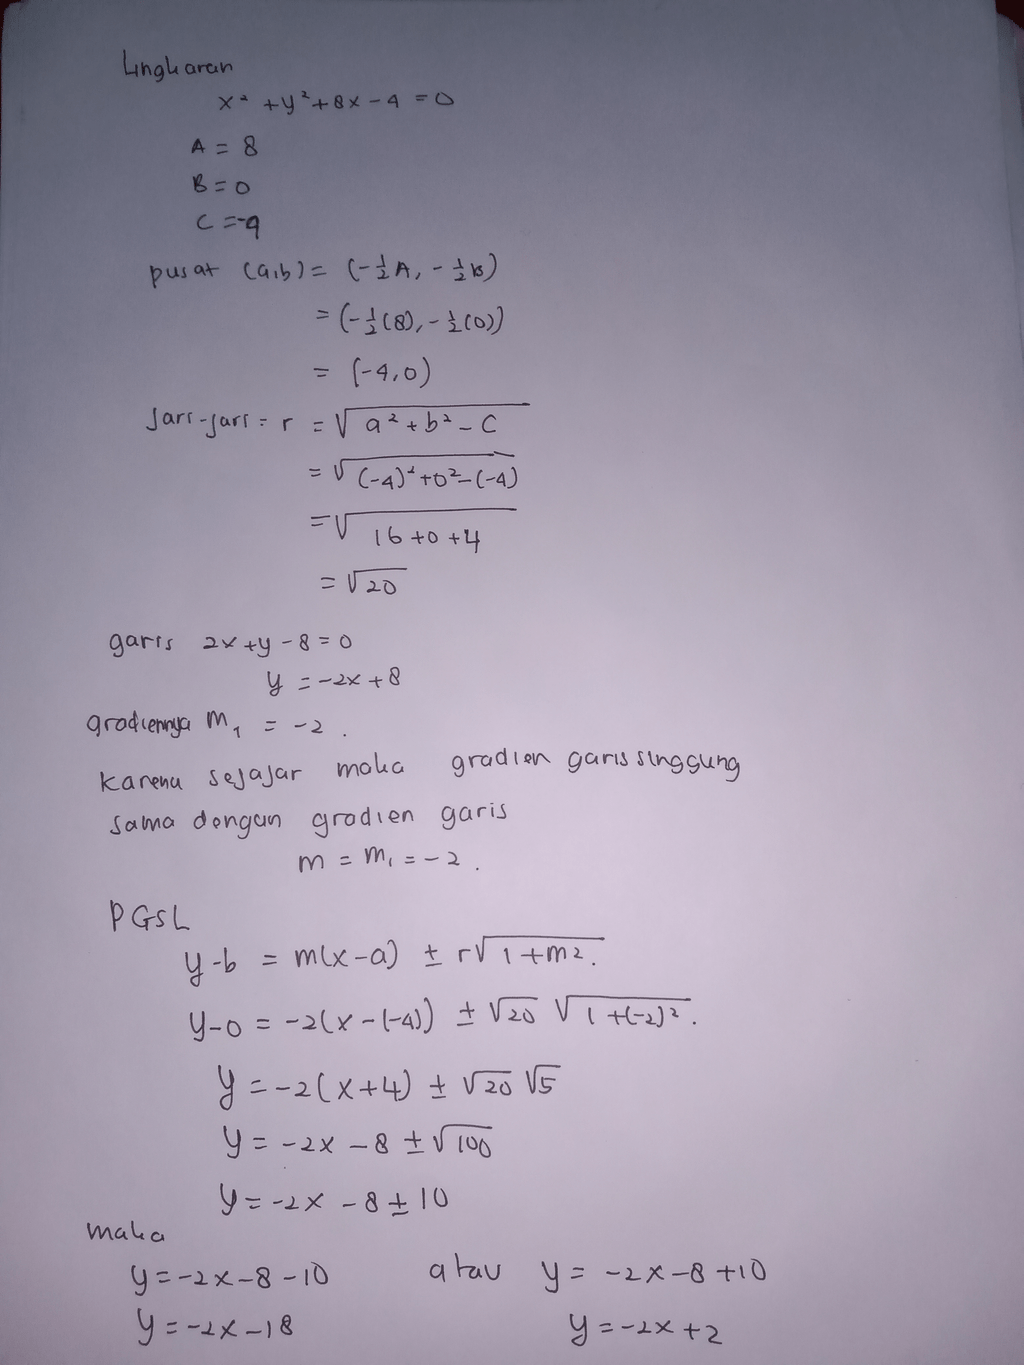 Lingkaran
x² + y² + 8x - 4 = 0
A = 8
B = 0
C = -4
pusat (a,b) = (-½A, -½B)
= (-½(8), -½(0))
= (-4,0)
Jari-jari = r = √a² + b² - C
= √(-4)² + 0² - (-4)
= √16 + 0 + 4
= √20
garis 2x + y - 8 = 0
y = -2x + 8
gradiennya m₁ = -2.
karena sejajar maka gradien garis singgung
sama dengan gradien garis
m = m₁ = -2.
PGSL
y - b = m(x - a) ± r√1 + m².
y - 0 = -2(x - (-4)) ± √20 √1 + (-2)².
y = -2(x + 4) ± √20 √5
y = -2x - 8 ± √100
y = -2x - 8 ± 10
maka
y = -2x - 8 - 10 atau y = -2x - 8 + 10
y = -2x - 18 y = -2x + 2